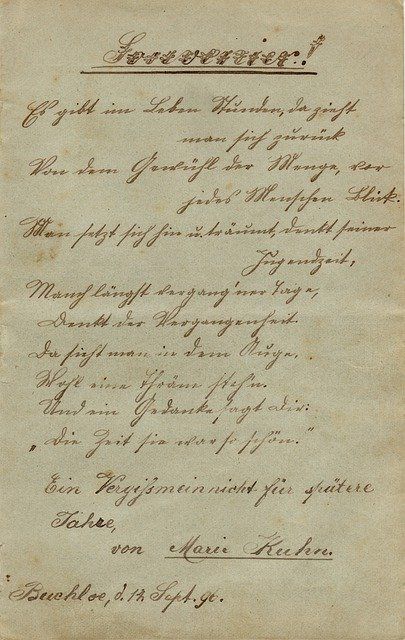 Fort vorbei!
Es gibt im Leben Stunden, da zieht
man sich zurück
Von dem Gewühl der Menge, vor
jedes Menschen Blick.
Man setzt sich hin u. träumt, denkt seiner
Jugendzeit,
Manch längst vergang'ner Tage,
Denkt der Vergangenheit
Da sieht man in dem Auge,
Wohl eine Thräne steh'n.
Und ein Gedanke sagt dir:
„Die Zeit sie war so schön."
Ein Vergißmeinnicht für spätere
Jahre,
von Marie Kuhn.
Buchloe, d. 12. Sept. 90.